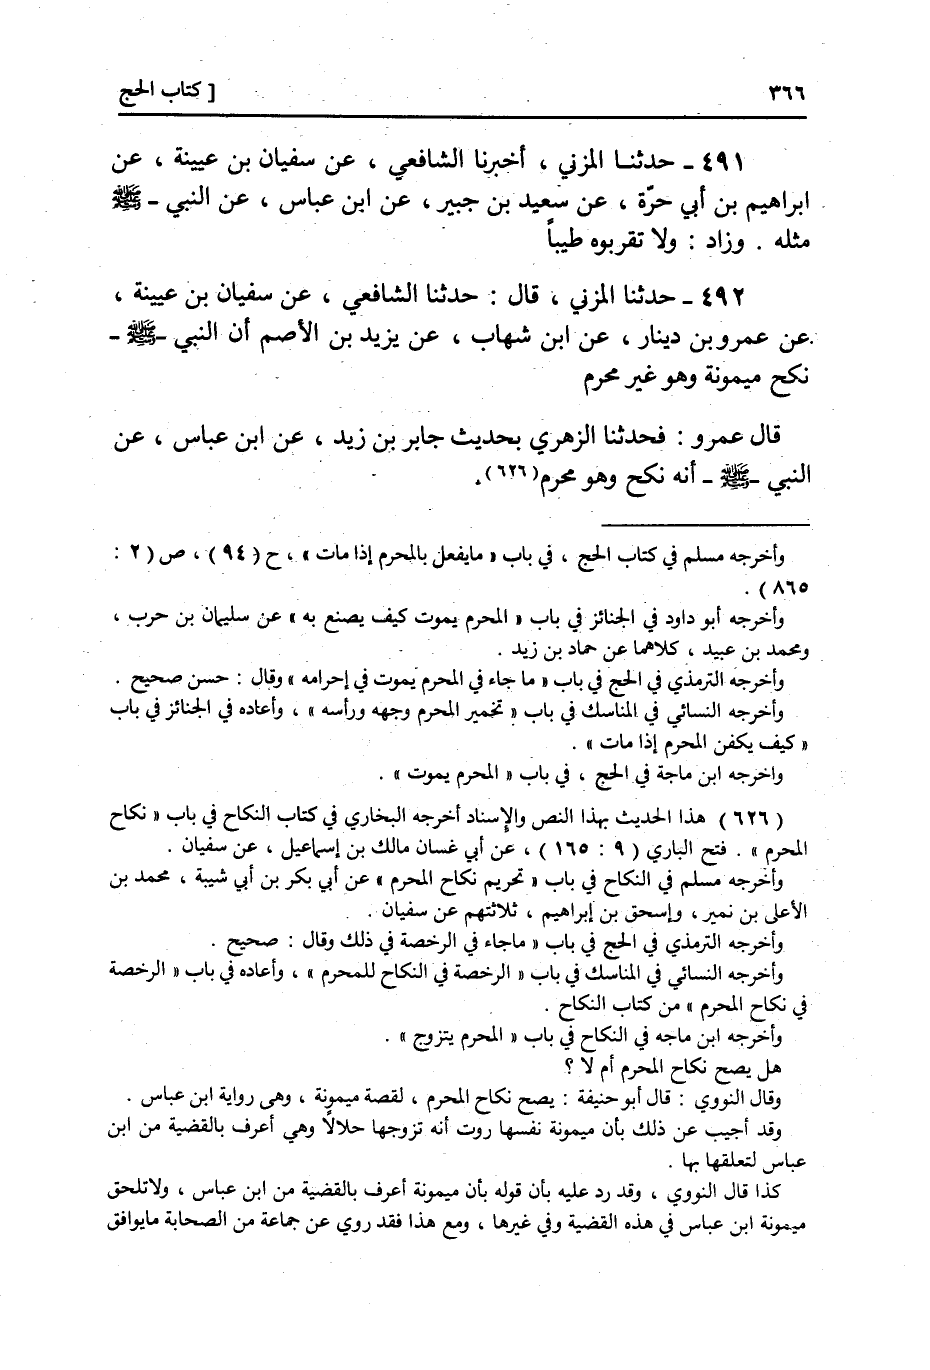 ٣٦٦
[ كتاب الحج
٤٩١ ـ حدثنـا المزني ، أخبرنا الشافعي ، عن سفيان بن عيينة ، عن
ابراهيم بن أبي حرّة ، عن سعيد بن جبير ، عن ابن عباس ، عن النبي ـ ﷺ
مثله . وزاد : ولا تقربوه طيباً
٤٩٢ ـ حدثنا المزني ، قال : حدثنا الشافعي ، عن سفيان بن عيينة ،
عن عمرو بن دينار ، عن ابن شهاب ، عن يزيد بن الأصم أن النبي ـ ﷺ ـ
نكح ميمونة وهو غير محرم
قال عمرو : فحدثنا الزهري بحديث جابر بن زيد ، عن ابن عباس ، عن
النبي ـ ﷺ ـ أنه نكح وهو محرم (٦٢٦) .
وأخرجه مسلم في كتاب الحج ، في باب « مايفعل بالمحرم إذا مات » ، ح ( ٩٤ ) ، ص ( ٢ :
٨٦٥ ) .
وأخرجه أبو داود في الجنائز في باب « المحرم يموت كيف يصنع به » عن سليمان بن حرب ،
ومحمد بن عبيد ، كلاهما عن حماد بن زيد .
وأخرجه الترمذي في الحج في باب « ما جاء في المحرم يموت في إحرامه » وقال : حسن صحيح .
وأخرجه النسائي في المناسك في باب « تخمير المحرم وجهه ورأسه » ، وأعاده في الجنائز في باب
« كيف يكفن المحرم إذا مات » .
واخرجه ابن ماجة في الحج ، في باب « المحرم يموت » .
( ٦٢٦ ) هذا الحديث بهذا النص والإسناد أخرجه البخاري في كتاب النكاح في باب « نكاح
المحرم » . فتح الباري ( ٩ : ١٦٥ ) ، عن أبي غسان مالك بن إسماعيل ، عن سفيان .
وأخرجه مسلم في النكاح في باب « تحريم نكاح المحرم » عن أبي بكر بن أبي شيبة ، محمد بن
الأعلى بن نمير ، وإسحق بن إبراهيم ، ثلاثتهم عن سفيان .
وأخرجه الترمذي في الحج في باب « ماجاء في الرخصة في ذلك وقال : صحيح .
وأخرجه النسائي في المناسك في باب « الرخصة في النكاح للمحرم » ، وأعاده في باب « الرخصة
في نكاح المحرم » من كتاب النكاح .
وأخرجه ابن ماجه في النكاح في باب « المحرم يتزوج » .
هل يصح نكاح المحرم أم لا ؟
وقال النووي : قال أبو حنيفة : يصح نكاح المحرم ، لقصة ميمونة ، وهى رواية ابن عباس .
وقد أجيب عن ذلك بأن ميمونة نفسها روت أنه تزوجها حلالاً وهي أعرف بالقضية من ابن
عباس لتعلقها بها .
كذا قال النووي ، وقد رد عليه بأن قوله بأن ميمونة أعرف بالقضية من ابن عباس ، ولاتلحق
ميمونة ابن عباس في هذه القضية وفي غيرها ، ومع هذا فقد روي عن جماعة من الصحابة مايوافق